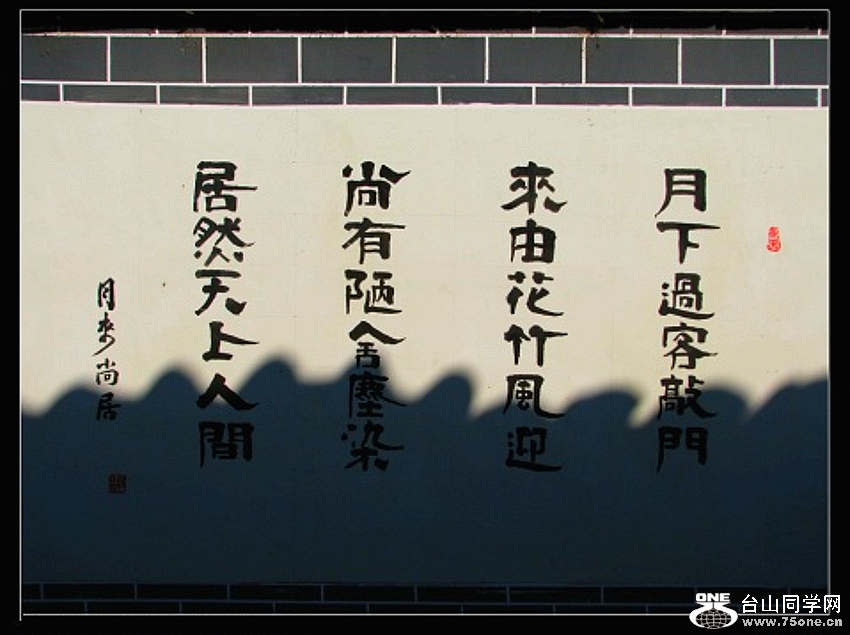 月下過客敲門
來由花竹風迎
尚有陋舍塵染
居然天上人間
月來尚居
ONE
台山同学网
www.75one.cn